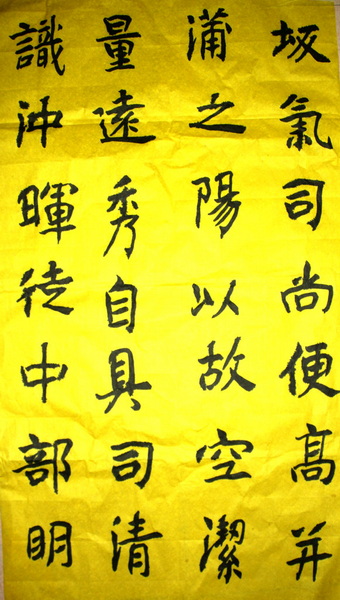 坂氣司尚便高并
蒲之陽以故空潔
量遠秀自具司清
識沖暉徒中部明